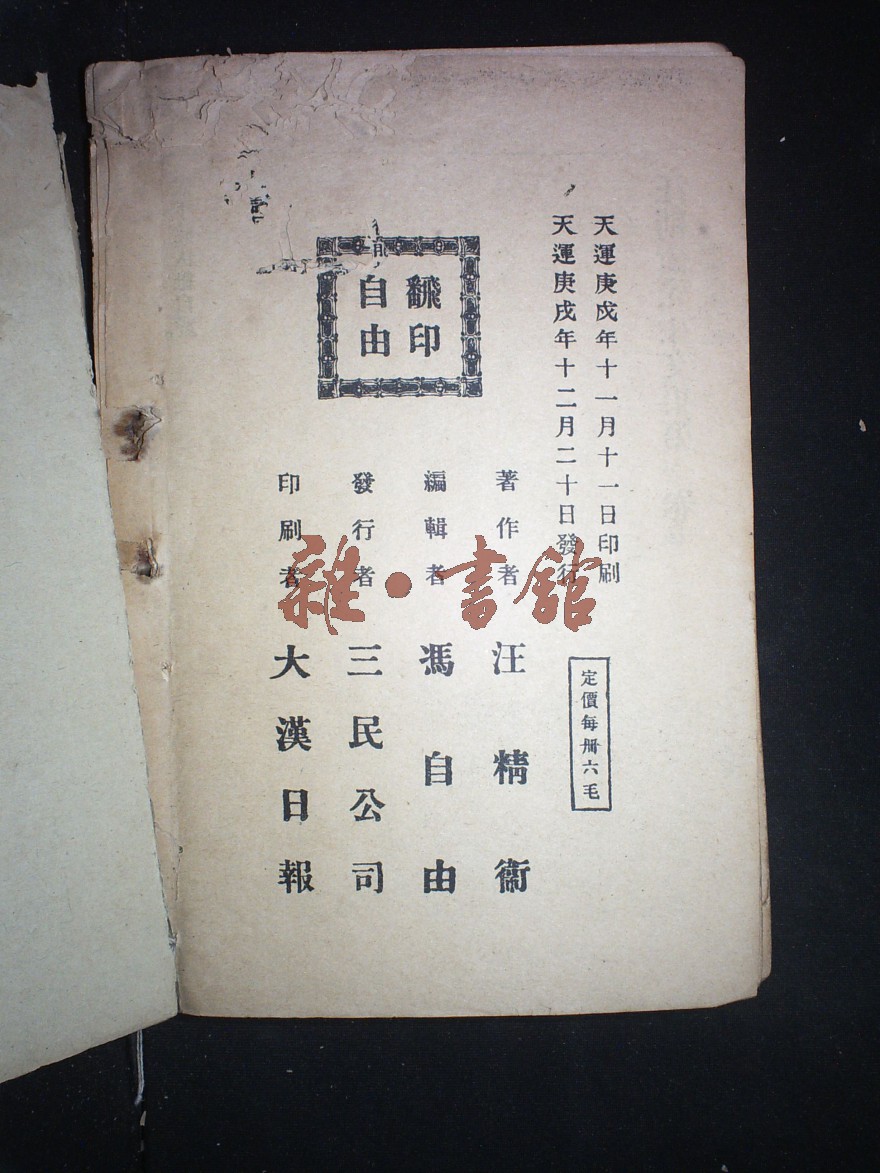 天運庚戌年十一月十一日印刷
天運庚戌年十二月二十日發行
定價每冊六毛
著作者 汪精衞
編輯者 馮自由
發行者 三民公司
印刷者 大漢日報
翻印
自由
雜·書館